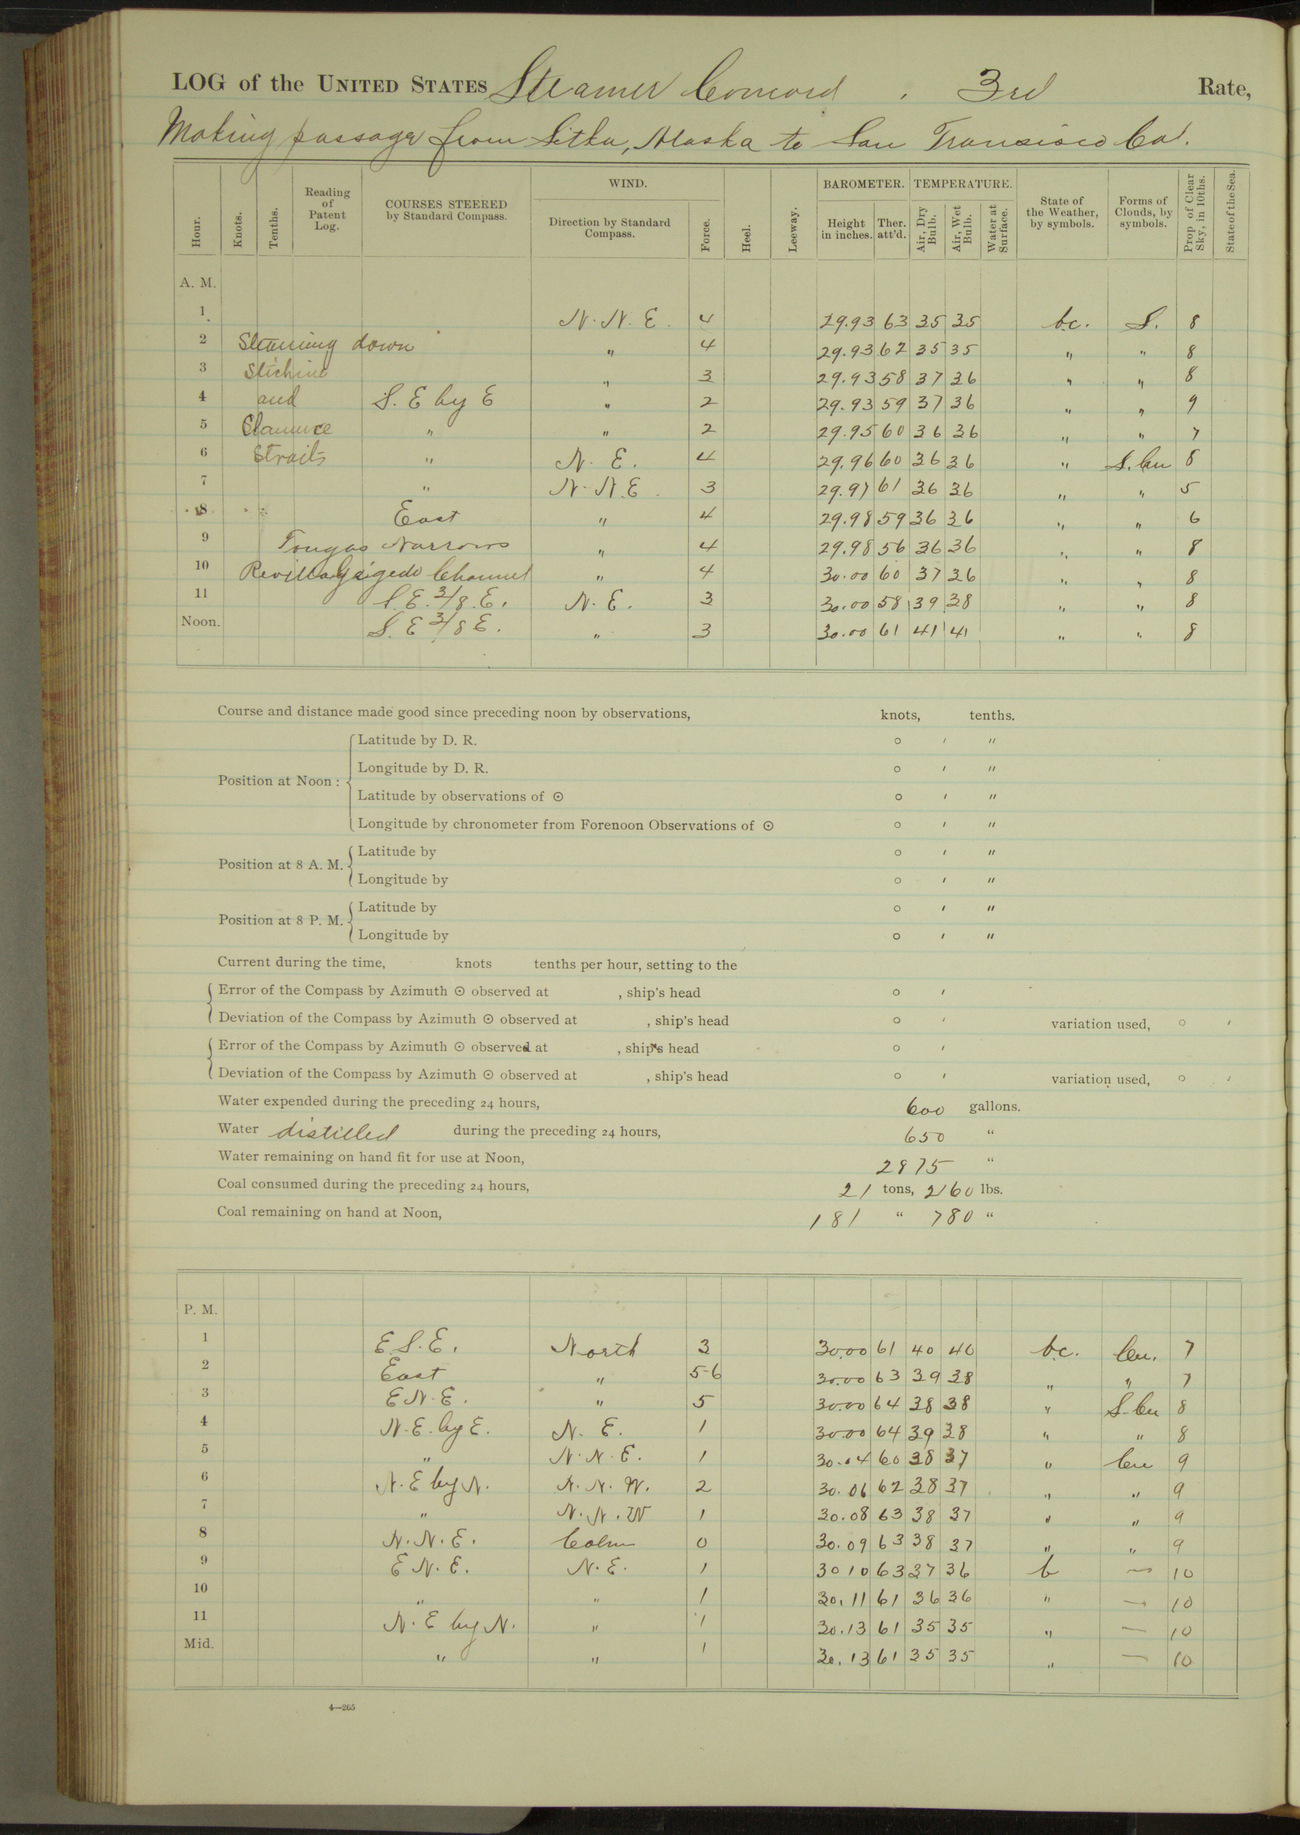 LOG of the UNITED STATES Steamer Concord , 3rd Rate,
Making passage from Sitka, Alaska to San Francisco Cal.
Hour. Knots. Tenths. Reading of Patent Log. COURSES STEERED by Standard Compass. WIND. Direction by Standard Compass. Force. Heel. Leeway. BAROMETER. Height in inches. Ther. att'd. TEMPERATURE. Air, Dry Bulb. Air, Wet Bulb. Water at Surface. State of the Weather, by symbols. Forms of Clouds, by symbols. Prop. of Clear Sky, in 10ths. State of the Sea.
A. M.
1 N.N.E. 4 29.93 63 35 35 b.c. S. 8
2 Steaming down " 4 29.93 62 35 35 " " 8
3 Stichine " 3 29.93 58 37 36 " " 8
4 and S. E by E " 2 29.93 59 37 36 " " 9
5 Clarence " " 2 29.95 60 36 36 " " 7
6 Straits " N. E. 4 29.96 60 36 36 " S. Cu 8
7 " N.N.E. 3 29.97 61 36 36 " " 5
8 East " 4 29.98 59 36 36 " " 6
9 Tongas Narrows " 4 29.98 56 36 36 " " 8
10 Revillagigedo Channel " 4 30.00 60 37 36 " " 8
11 S.E. 3/8 E. N. E. 3 30.00 58 39 38 " " 8
Noon. S. E 3/8 E. " 3 30.00 61 41 41 " " 8
Course and distance made good since preceding noon by observations, knots, tenths.
Position at Noon: Latitude by D. R. ° ′ ″
Longitude by D. R. ° ′ ″
Latitude by observations of ⊙ ° ′ ″
Longitude by chronometer from Forenoon Observations of ⊙ ° ′ ″
Position at 8 A. M. Latitude by ° ′ ″
Longitude by ° ′ ″
Position at 8 P. M. Latitude by ° ′ ″
Longitude by ° ′ ″
Current during the time, knots tenths per hour, setting to the
Error of the Compass by Azimuth ⊙ observed at , ship's head ° ′
Deviation of the Compass by Azimuth ⊙ observed at , ship's head ° ′ variation used, ° ′
Error of the Compass by Azimuth ⊙ observed at , ship's head ° ′
Deviation of the Compass by Azimuth ⊙ observed at , ship's head ° ′ variation used, ° ′
Water expended during the preceding 24 hours, 600 gallons.
Water distilled during the preceding 24 hours, 650 "
Water remaining on hand fit for use at Noon, 2875 "
Coal consumed during the preceding 24 hours, 21 tons, 260 lbs.
Coal remaining on hand at Noon, 181 " 780 "
P. M.
1 E.S.E. North 3 30.00 61 40 40 b.c. Cu. 7
2 East " 5-6 30.00 63 39 38 " " 7
3 E.N.E. " 5 30.00 64 38 38 " S. Cu 8
4 N.E. by E. N. E. 1 30.00 64 39 38 " " 8
5 " N.N.E. 1 30.04 60 38 37 " Cu 9
6 N. E by N. N.N.W. 2 30.06 62 38 37 " " 9
7 " N.N.W 1 30.08 63 38 37 " " 9
8 N.N.E. Calm 0 30.09 63 38 37 " " 9
9 E.N.E. N.E. 1 30 10 63 37 36 b — 10
10 " " 1 30.11 61 36 36 " — 10
11 N. E by N. " 1 30.13 61 35 35 " — 10
Mid. " " 1 30.13 61 35 35 " — 10
4—265